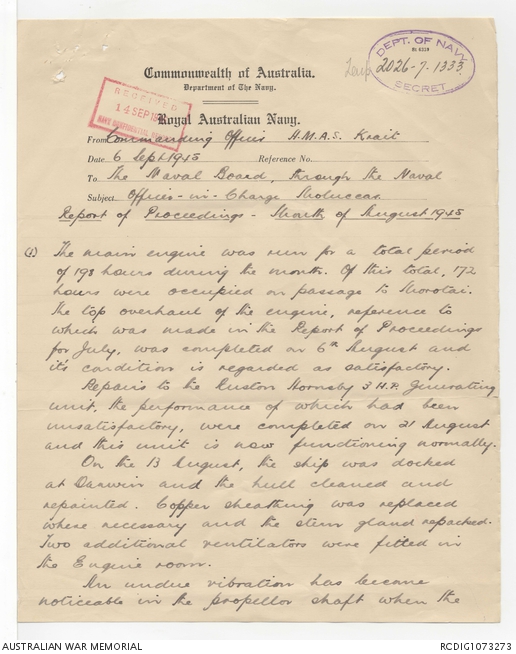 DEPT. OF NAVY
2026-7-1333
SECRET
Commonwealth of Australia.
Department of the Navy.
RECEIVED
14 SEP 19
Royal Australian Navy.
From Commanding Officer H.M.A.S. Krait
Date 6 Sept 1945 Reference No.
To The Naval Board, through the Naval
Subject Officer-in-Charge Moluccas.
Report of Proceedings - Month of August 1945
(1) The main engine was run for a total period
of 198 hours during the month. Of this total, 172
hours were occupied on passage to Morotai.
The top overhaul of the engine, reference to
which was made in the Report of Proceedings
for July, was completed on 6th August and
it's condition is regarded as satisfactory.
Repairs to the Ruston Hornsby 3 H.P. Generating
unit, the performance of which had been
unsatisfactory, were completed on 21 August
and this unit is now functioning normally.
On the 13 August, the ship was docked
at Darwin and the hull cleaned and
repainted. Copper sheathing was replaced
where necessary and the stern gland repacked.
Two additional ventilators were fitted in
the Engine room.
An undue vibration has become
noticeable in the propellor shaft when the
AUSTRALIAN WAR MEMORIAL
RCDIG1073273